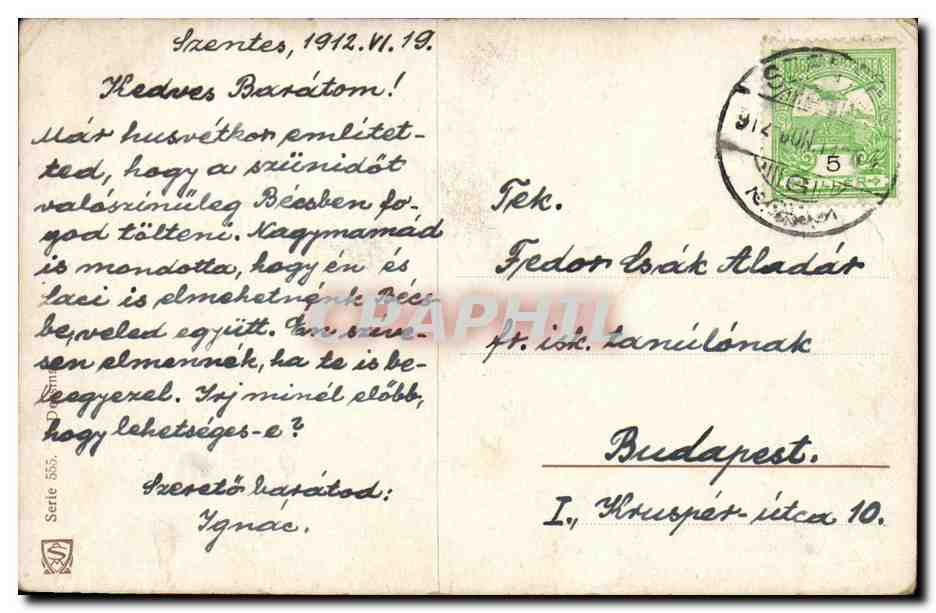 Szentes, 1912. VI. 19.
Kedves Barátom!
Már husvétkor emlitet-
ted, hogy a szünidőt
valószinűleg Bécsben fo-
god tölteni. Nagymamád
is mondotta, hogy én és
Laci is elmehetnénk Bécs-
be, veled együtt. Én szive-
sen elmennék, ha te is be-
leegyezel. Irj minél előbb,
hogy lehetséges-e?
Szerető barátod:
Ignác.
Tek.
Fedor Csák Aladár
fr. isk. tanúlónak
Budapest.
I., Kruspér-útca 10.
5
Serie 555.
CPAPHIL